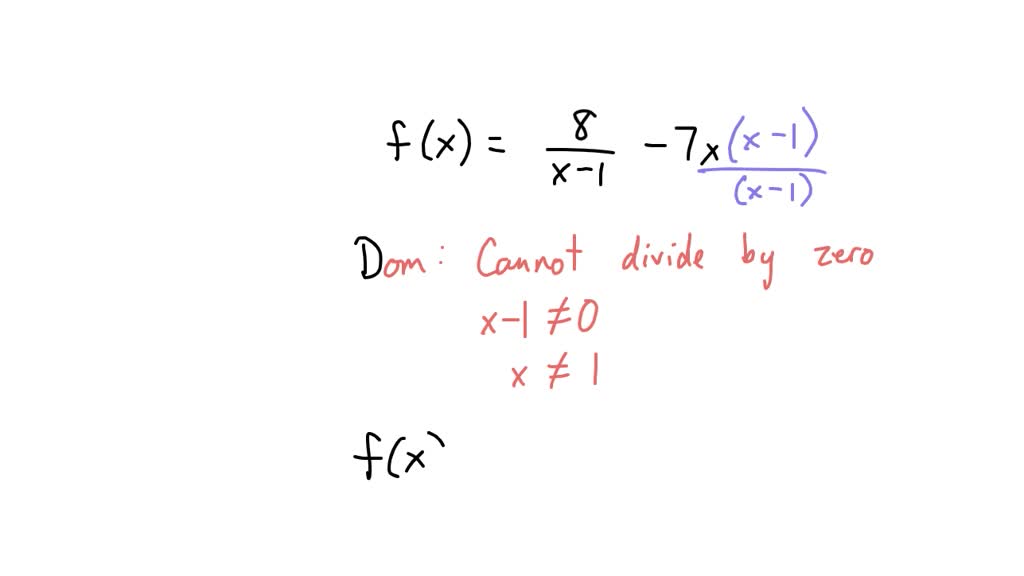 f(x) = 8/(x-1) - 7x (x-1)/(x-1)
Dom: Cannot divide by zero
x-1 ≠ 0
x ≠ 1
f(x)